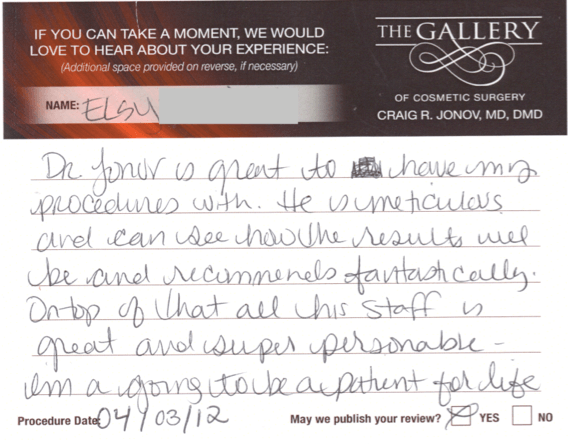 IF YOU CAN TAKE A MOMENT, WE WOULD
LOVE TO HEAR ABOUT YOUR EXPERIENCE:
(Additional space provided on reverse, if necessary)
NAME: ELSY
THE GALLERY
OF COSMETIC SURGERY
CRAIG R. JONOV, MD, DMD
Dr. Jonov is great to have my
procedures with. He is meticulous
and can see how the results will
be and recommends fantastically.
On top of that all his staff is
great and super personable -
Im a going to be a patient for life
Procedure Date: 04/03/12
May we publish your review? YES NO